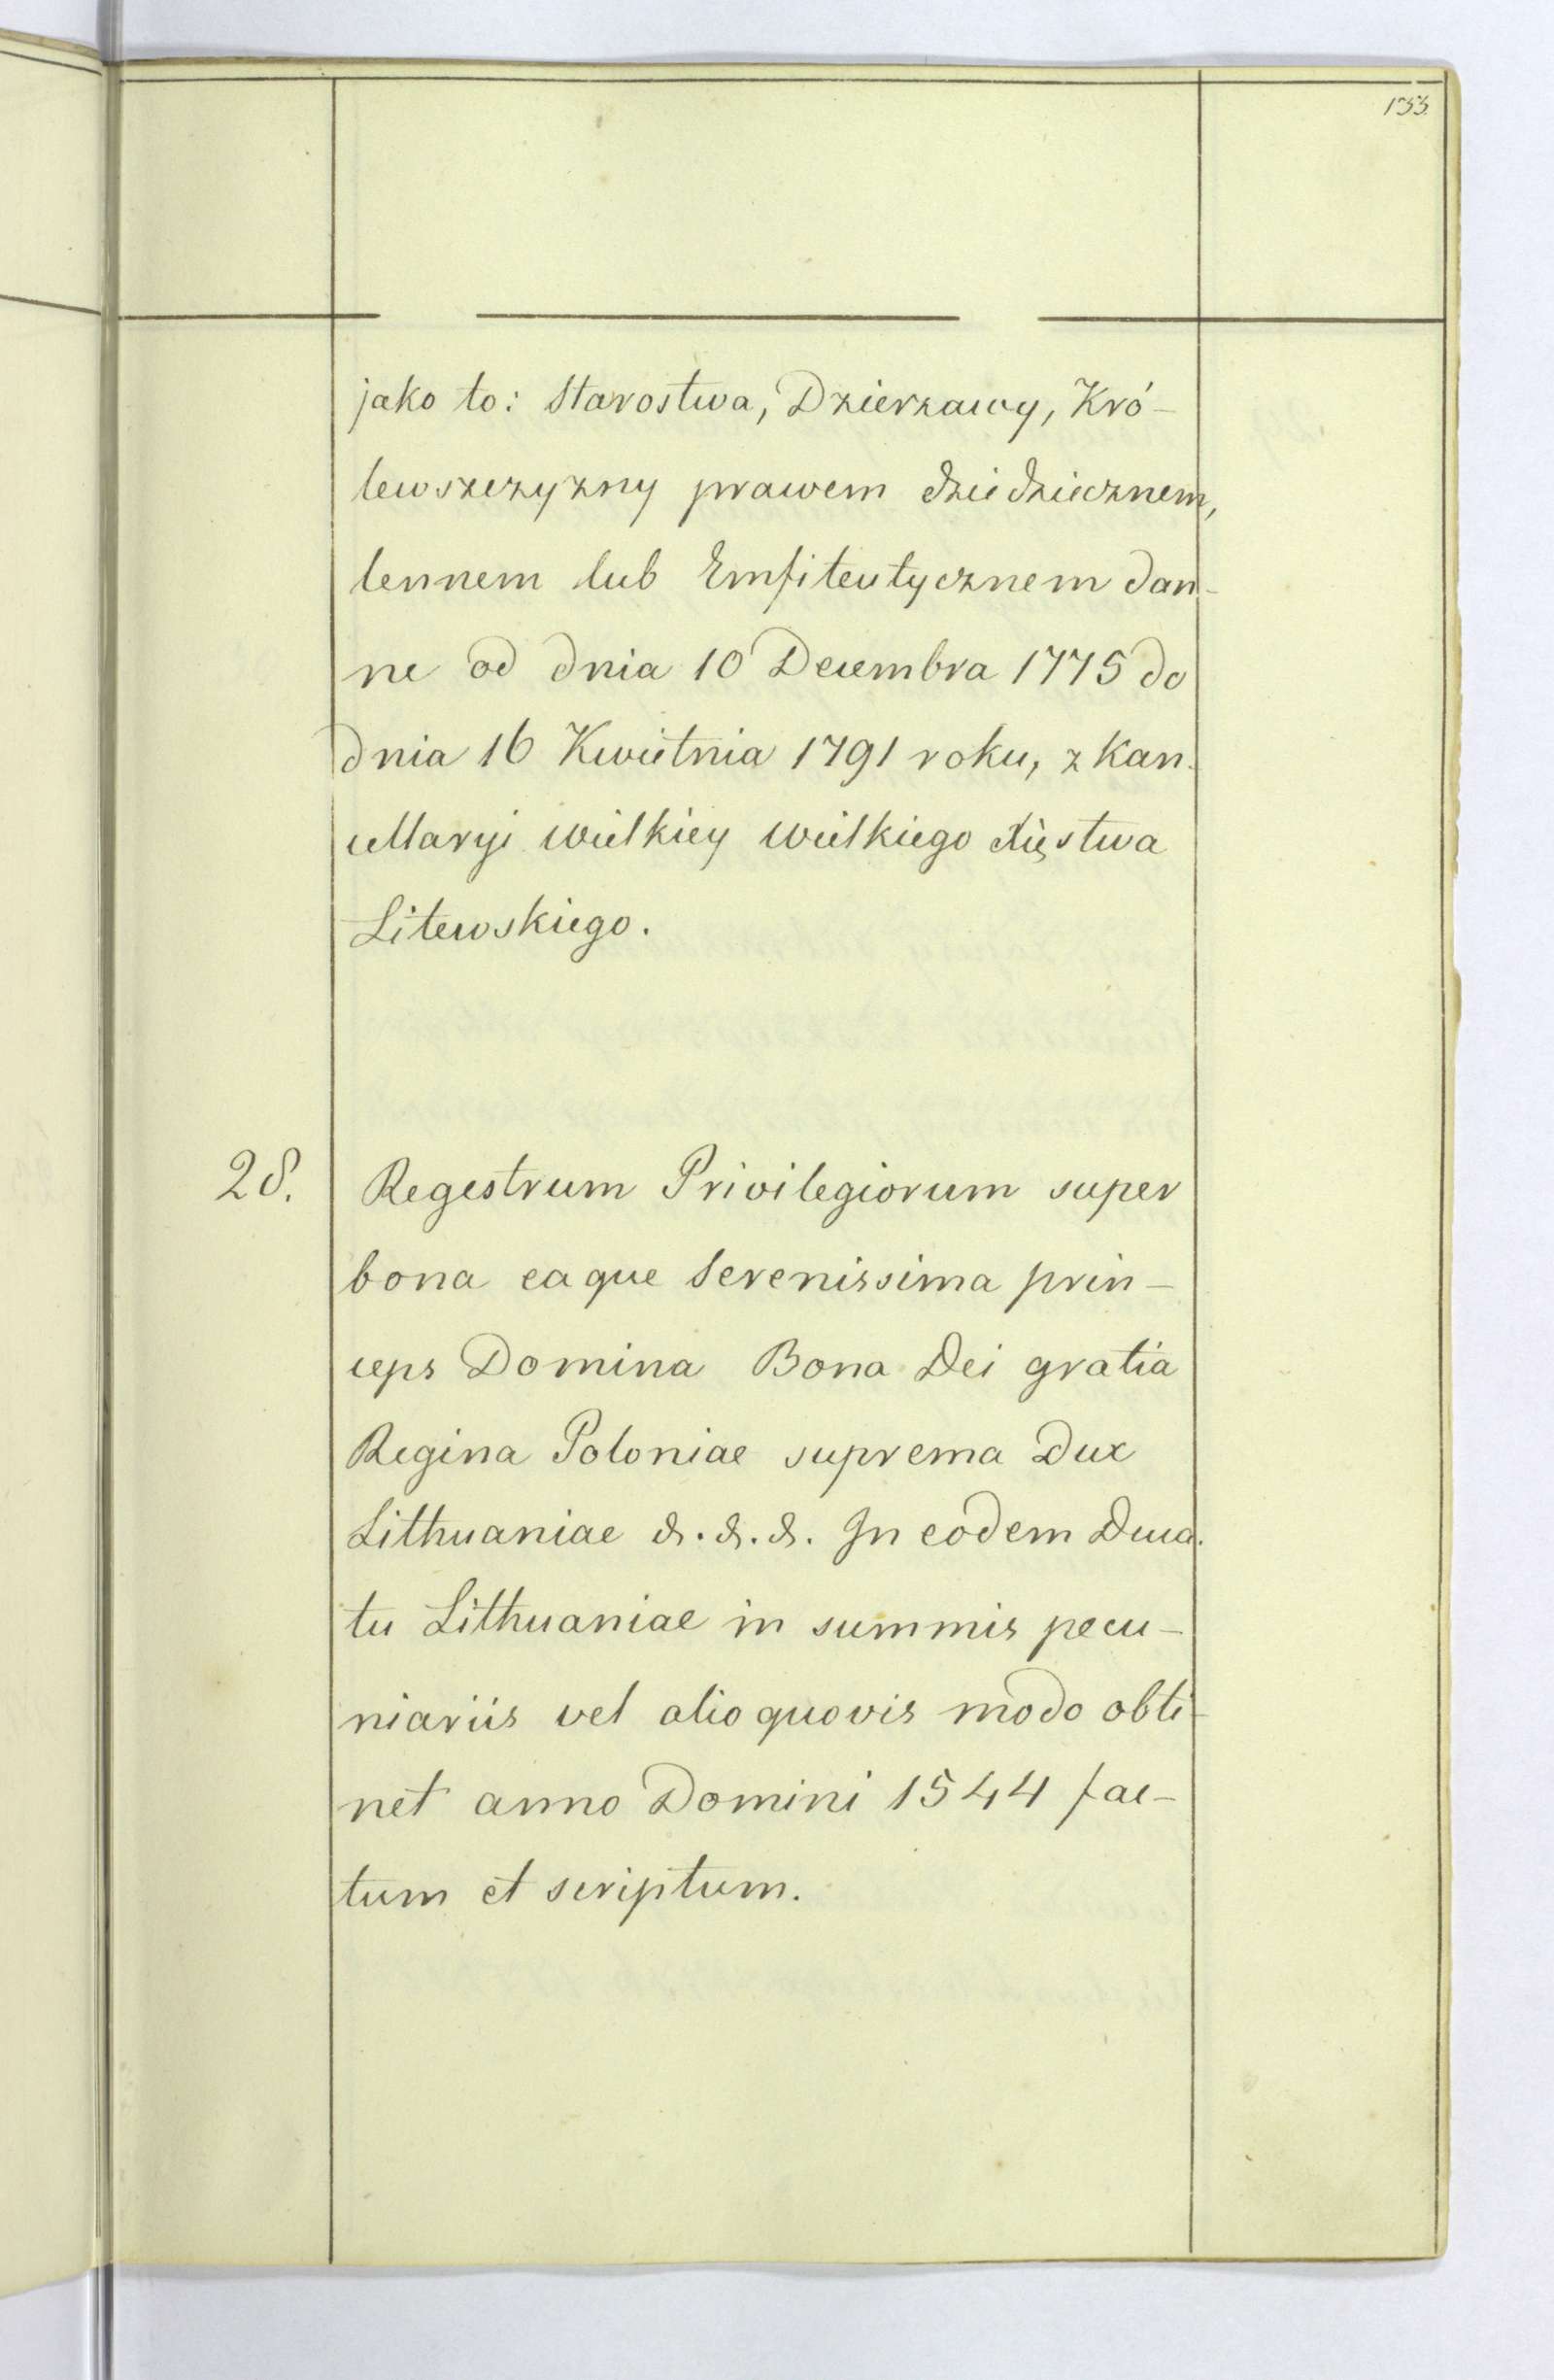 133.
jako to: Starostwa, Dzierzawy, Kró-
lewszczyzny prawem dziedzicznem,
lennem lub Emfiteutycznem dan-
ne od dnia 10 Decembra 1775 do
dnia 16 Kwietnia 1791 roku, z Kan-
cellaryi wielkiey wielkiego Xięstwa
Litewskiego.
28. Regestrum Privilegiorum super
bona eaque Serenissima prin-
ceps Domina Bona Dei gratia
Regina Poloniae suprema Dux
Lithuaniae &.&.&. In eodem Duca-
tu Lithuaniae in summis pecu-
niariis vel alio quovis modo obti-
net anno Domini 1544 fac-
tum et scriptum.